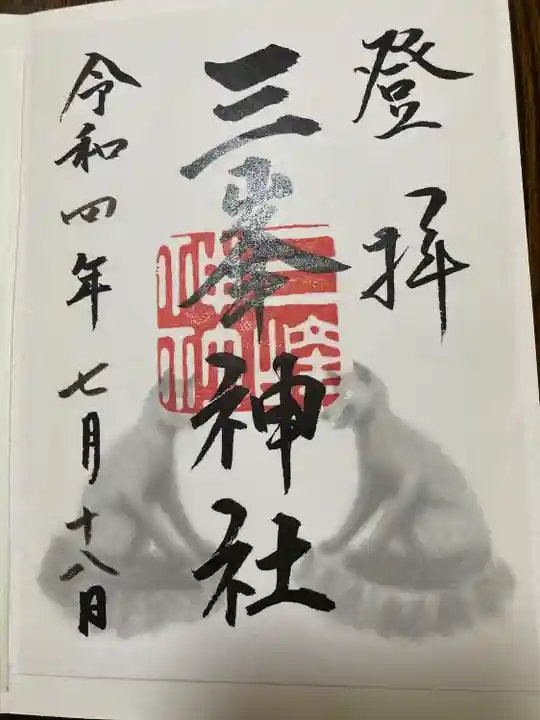 登拝
三峯神社
令和四年七月十八日